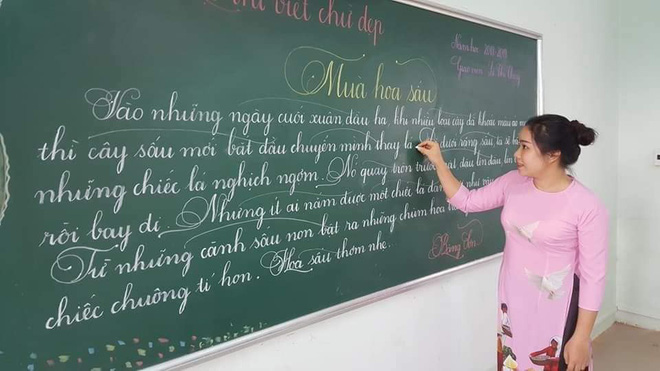 viết chữ đẹp
Năm học 2018-2019
Giáo viên:
Mùa hoa sấu
Vào những ngày cuối xuân đầu hạ, khi nhiều loại cây đã khoác màu áo m
thì cây sấu mới bắt đầu chuyển mình thay lá. dưới hàng sấu, ta sẽ
những chiếc lá nghịch ngợm. Nó quay tròn trước đầu lên
rồi bay đi. Nhưng ít ai nắm được một chiếc lá đang như
Từ những cành sấu non bật ra những chùm hoa
chiếc chuông tí hon. Hoa sấu thơm nhẹ.
Băng Sơn